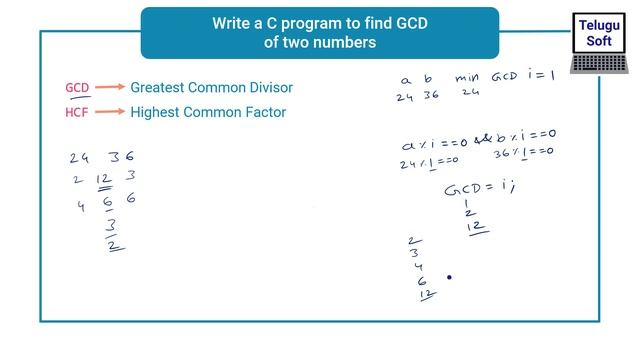 Write a C program to find GCD
of two numbers
Telugu
Soft
GCD → Greatest Common Divisor
HCF → Highest Common Factor
24 36
2 12 3
4 6 6
3
2
a b min GCD i=1
24 36 24
a%i==0 && b%i==0
24%1==0 36%1==0
GCD=i;
1
2
12
2
3
4
6
12